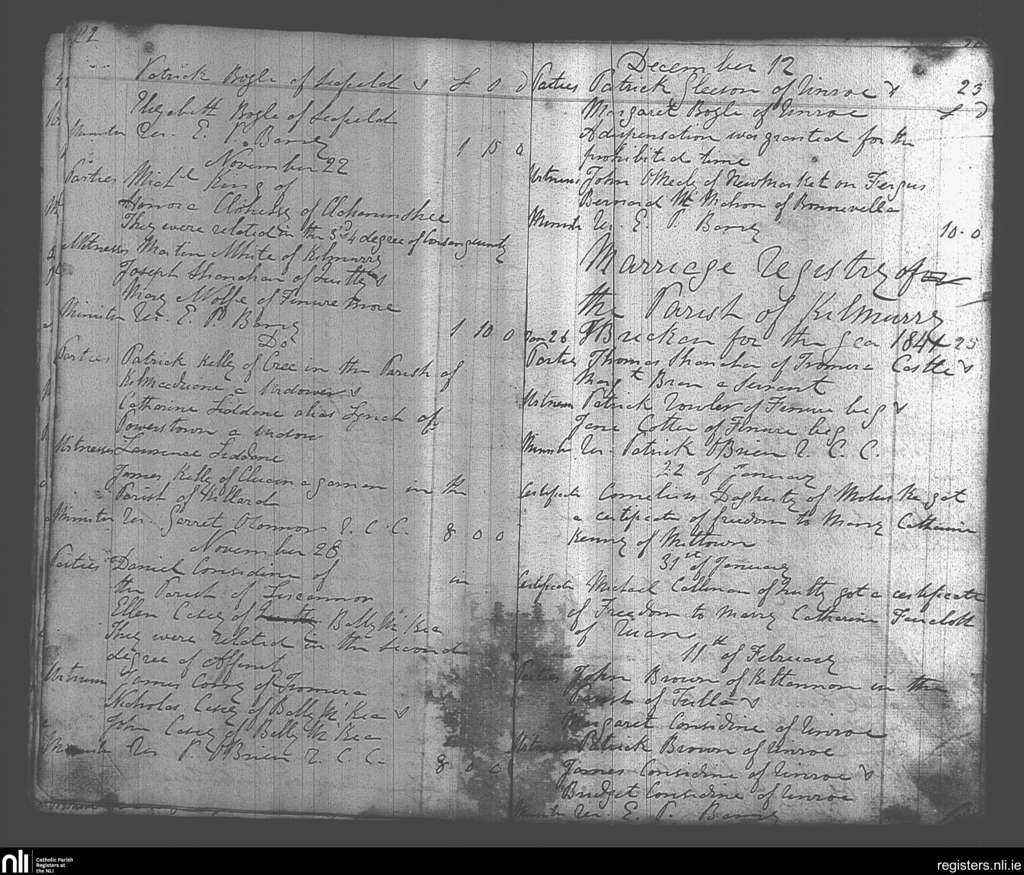 22
Patrick Bogle of Seafield £ 0 d
Elizabeth Bogle of Seafield
Minister Rev. E. P. Barry 1 15 0
November 22
Parties Michl King of
Honora Clohessy of Clohaninshee
They were related in the 3rd & 4 degree of Consanguinity
Witnesses Martin White of Kilmurry
Joseph Shanahan of Quilty
Mary Wolfe of Finure More
Minister Rev. E. P. Barry 1 10 0
Do
Parties Patrick Kelly of Cree in the Parish of
Kilmacduane a Widower
Catharine Liddane alias Lynch of
Powerstown a widow
Witnesses Lawrence Liddane
James Kelly of Cluain a garnan in the
Parish of Killard
Minister Rev. Garret OConnor R. C. C. 8 0 0
November 28
Parties Daniel Considine of in
the Parish of Liscannor
Ellen Casey of Bally McKea
They were related in the second
degree of Affinity
Witnesses James Conry of Tromera
Nicholas Casey of Bally McKea
John Casey of Bally McKea
Minister Rev P. OBrien R. C. C. 8 0 0
December 12
23
Parties Patrick Gleeson of Unroe £ d
Margaret Bogle of Unroe
A dispensation was granted for the
prohibited time
Witness John OMealy of Newmarket on Fergus
Bernard McMahon of Bonnevella
Minister Rev. E. P. Barry 10 0
Marriage Registry of
the Parish of Kilmurry
Jan 26 IBrickan for the year 1844 25
Parties Thomas Shanahan of Tromera Castle
Margt Bran a Servant
Witness Patrick Fowler of Finure beg
Jane Cotter of Finure beg
Minister Rev. Patrick OBrien R. C. C.
22 of January
Certificate Cornelius Dogherty of Molus Ke got
a certificate of freedom to Marry Catharine
Kenny of Miltown
31st of January
Certificate Michael Callinan of Quilty got a certificate
of Freedom to Marry Catharine
of Ruan
11th of February
Parties John Brown of Kiltannon in the
Parish of Tulla
Margaret Considine of Unroe
Witness Patrick Brown of Unroe
James Considine of Unroe
Bridget Considine of Unroe
Minister Rev. E. P. Barry
nli Catholic Parish
Registers at
the NLI
registers.nli.ie